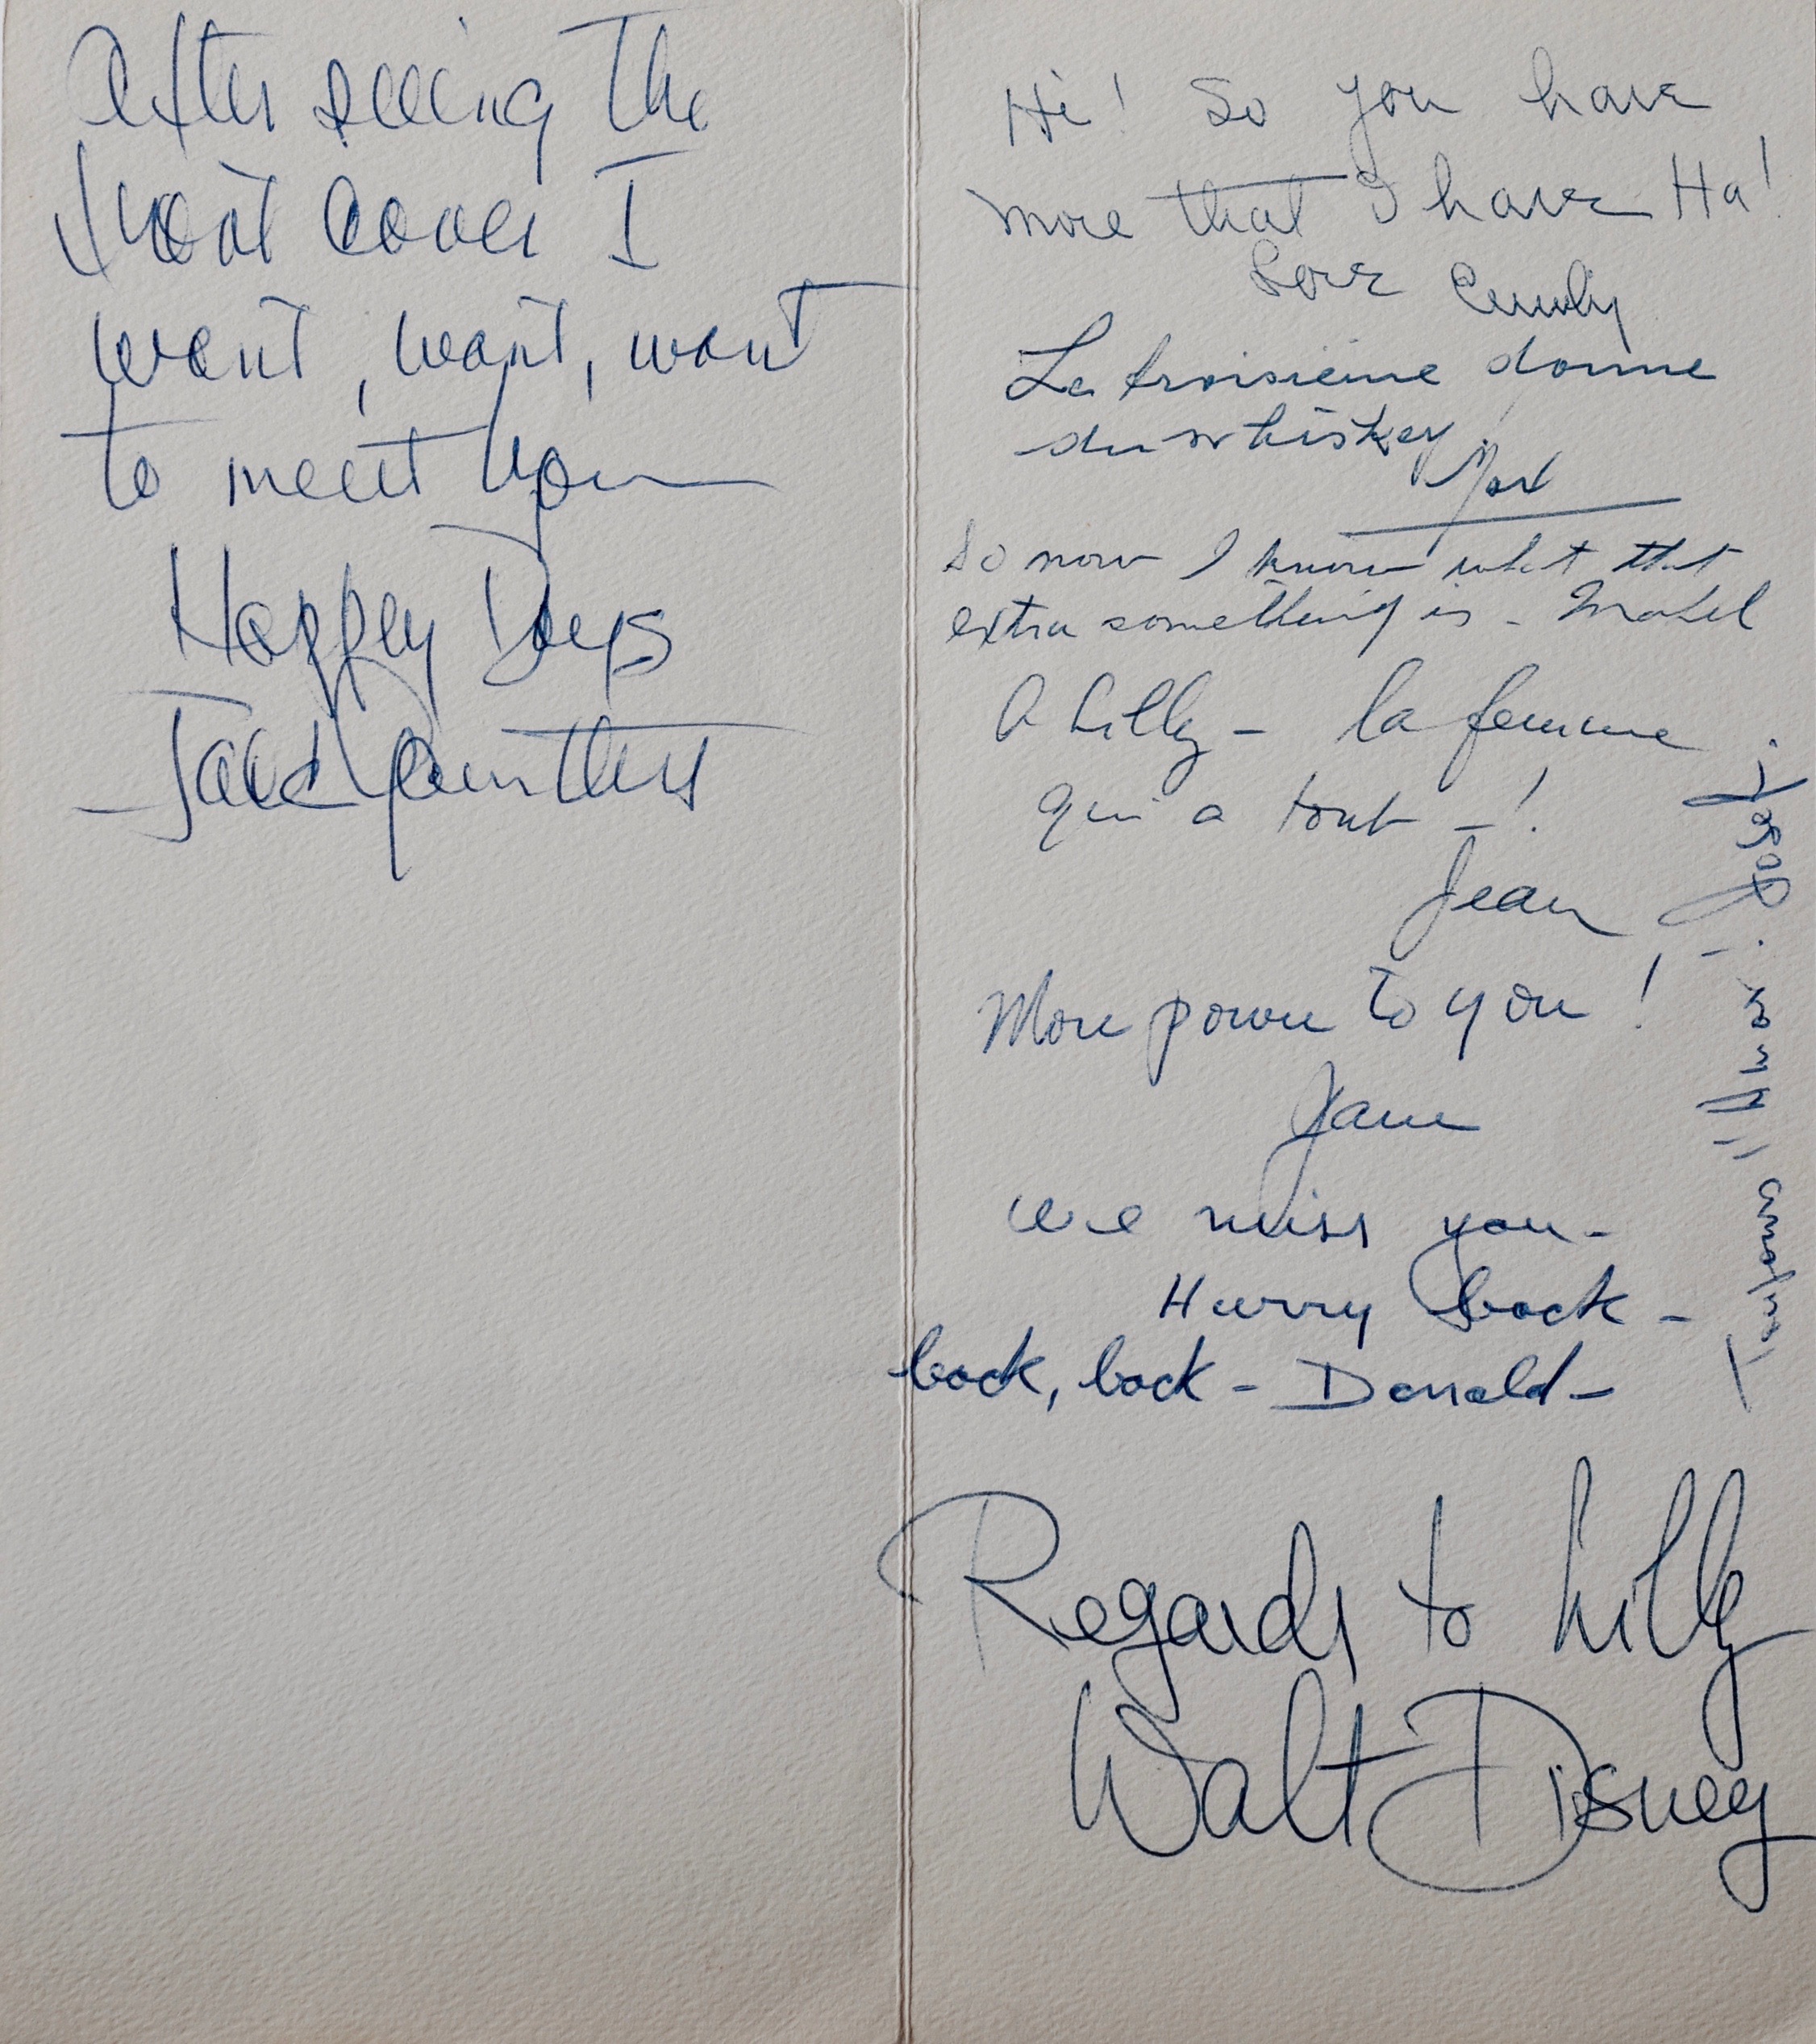 After seeing the
front cover I
want, want, want
to meet you
Happy Days
Hi! So you have
more that I have Ha!
Love Emily
La troisième donne
du whiskey
So now I know what that
extra something is - Mabel
A Lilly - la femme
qui a tout - !
Jean
More power to you!
Jane
We miss you -
Hurry back -
back, back - Donald -
Regards to Lilly
Walt Disney